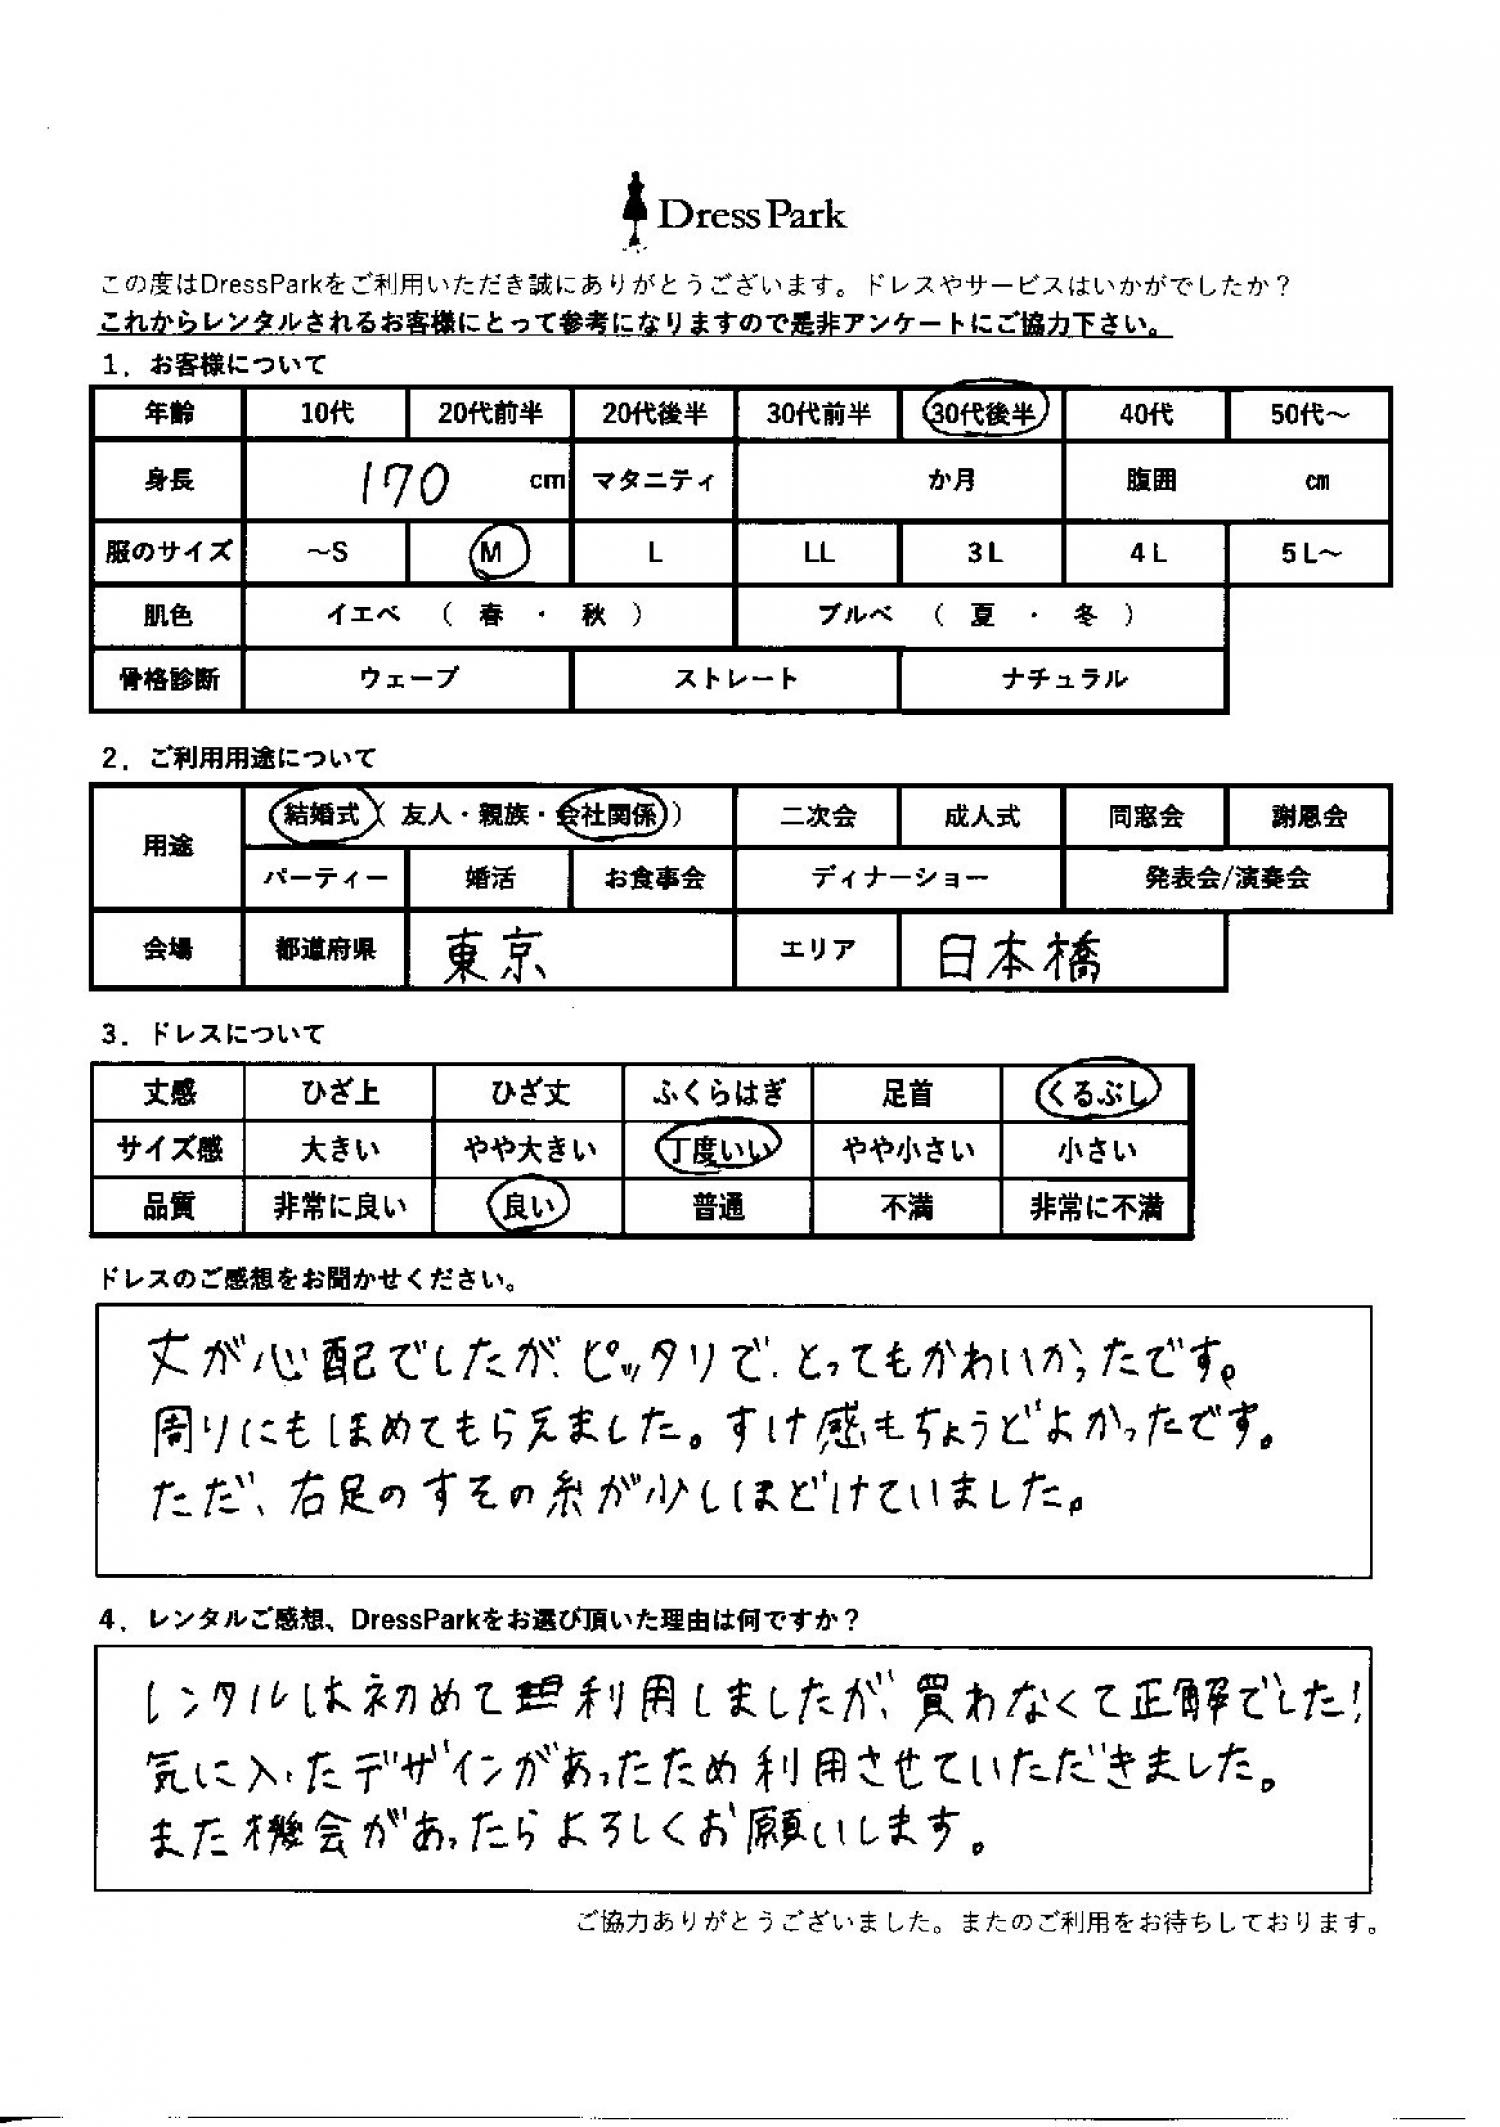 Dress Park
この度はDressParkをご利用いただき誠にありがとうございます。ドレスやサービスはいかがでしたか？
これからレンタルされるお客様にとって参考になりますので是非アンケートにご協力下さい。
1．お客様について
年齢 10代 20代前半 20代後半 30代前半 30代後半 40代 50代～
身長 170 cm マタニティ か月 腹囲 ㎝
服のサイズ ～S M L LL 3L 4L 5L～
肌色 イエベ （ 春 ・ 秋 ） ブルベ （ 夏 ・ 冬 ）
骨格診断 ウェーブ ストレート ナチュラル
2．ご利用用途について
用途 結婚式（ 友人・親族・会社関係 ） 二次会 成人式 同窓会 謝恩会
パーティー 婚活 お食事会 ディナーショー 発表会/演奏会
会場 都道府県 東京 エリア 日本橋
3．ドレスについて
丈感 ひざ上 ひざ丈 ふくらはぎ 足首 くるぶし
サイズ感 大きい やや大きい 丁度いい やや小さい 小さい
品質 非常に良い 良い 普通 不満 非常に不満
ドレスのご感想をお聞かせください。
丈が心配でしたが、ピッタリで、とってもかわいかったです。
周りにもほめてもらえました。すけ感もちょうどよかったです。
ただ、右足のすその糸が少しほどけていました。
4．レンタルご感想、DressParkをお選び頂いた理由は何ですか？
レンタルは初めて利用しましたが、買わなくて正解でした！
気に入ったデザインがあったため利用させていただきました。
また機会があったらよろしくお願いします。
ご協力ありがとうございました。またのご利用をお待ちしております。